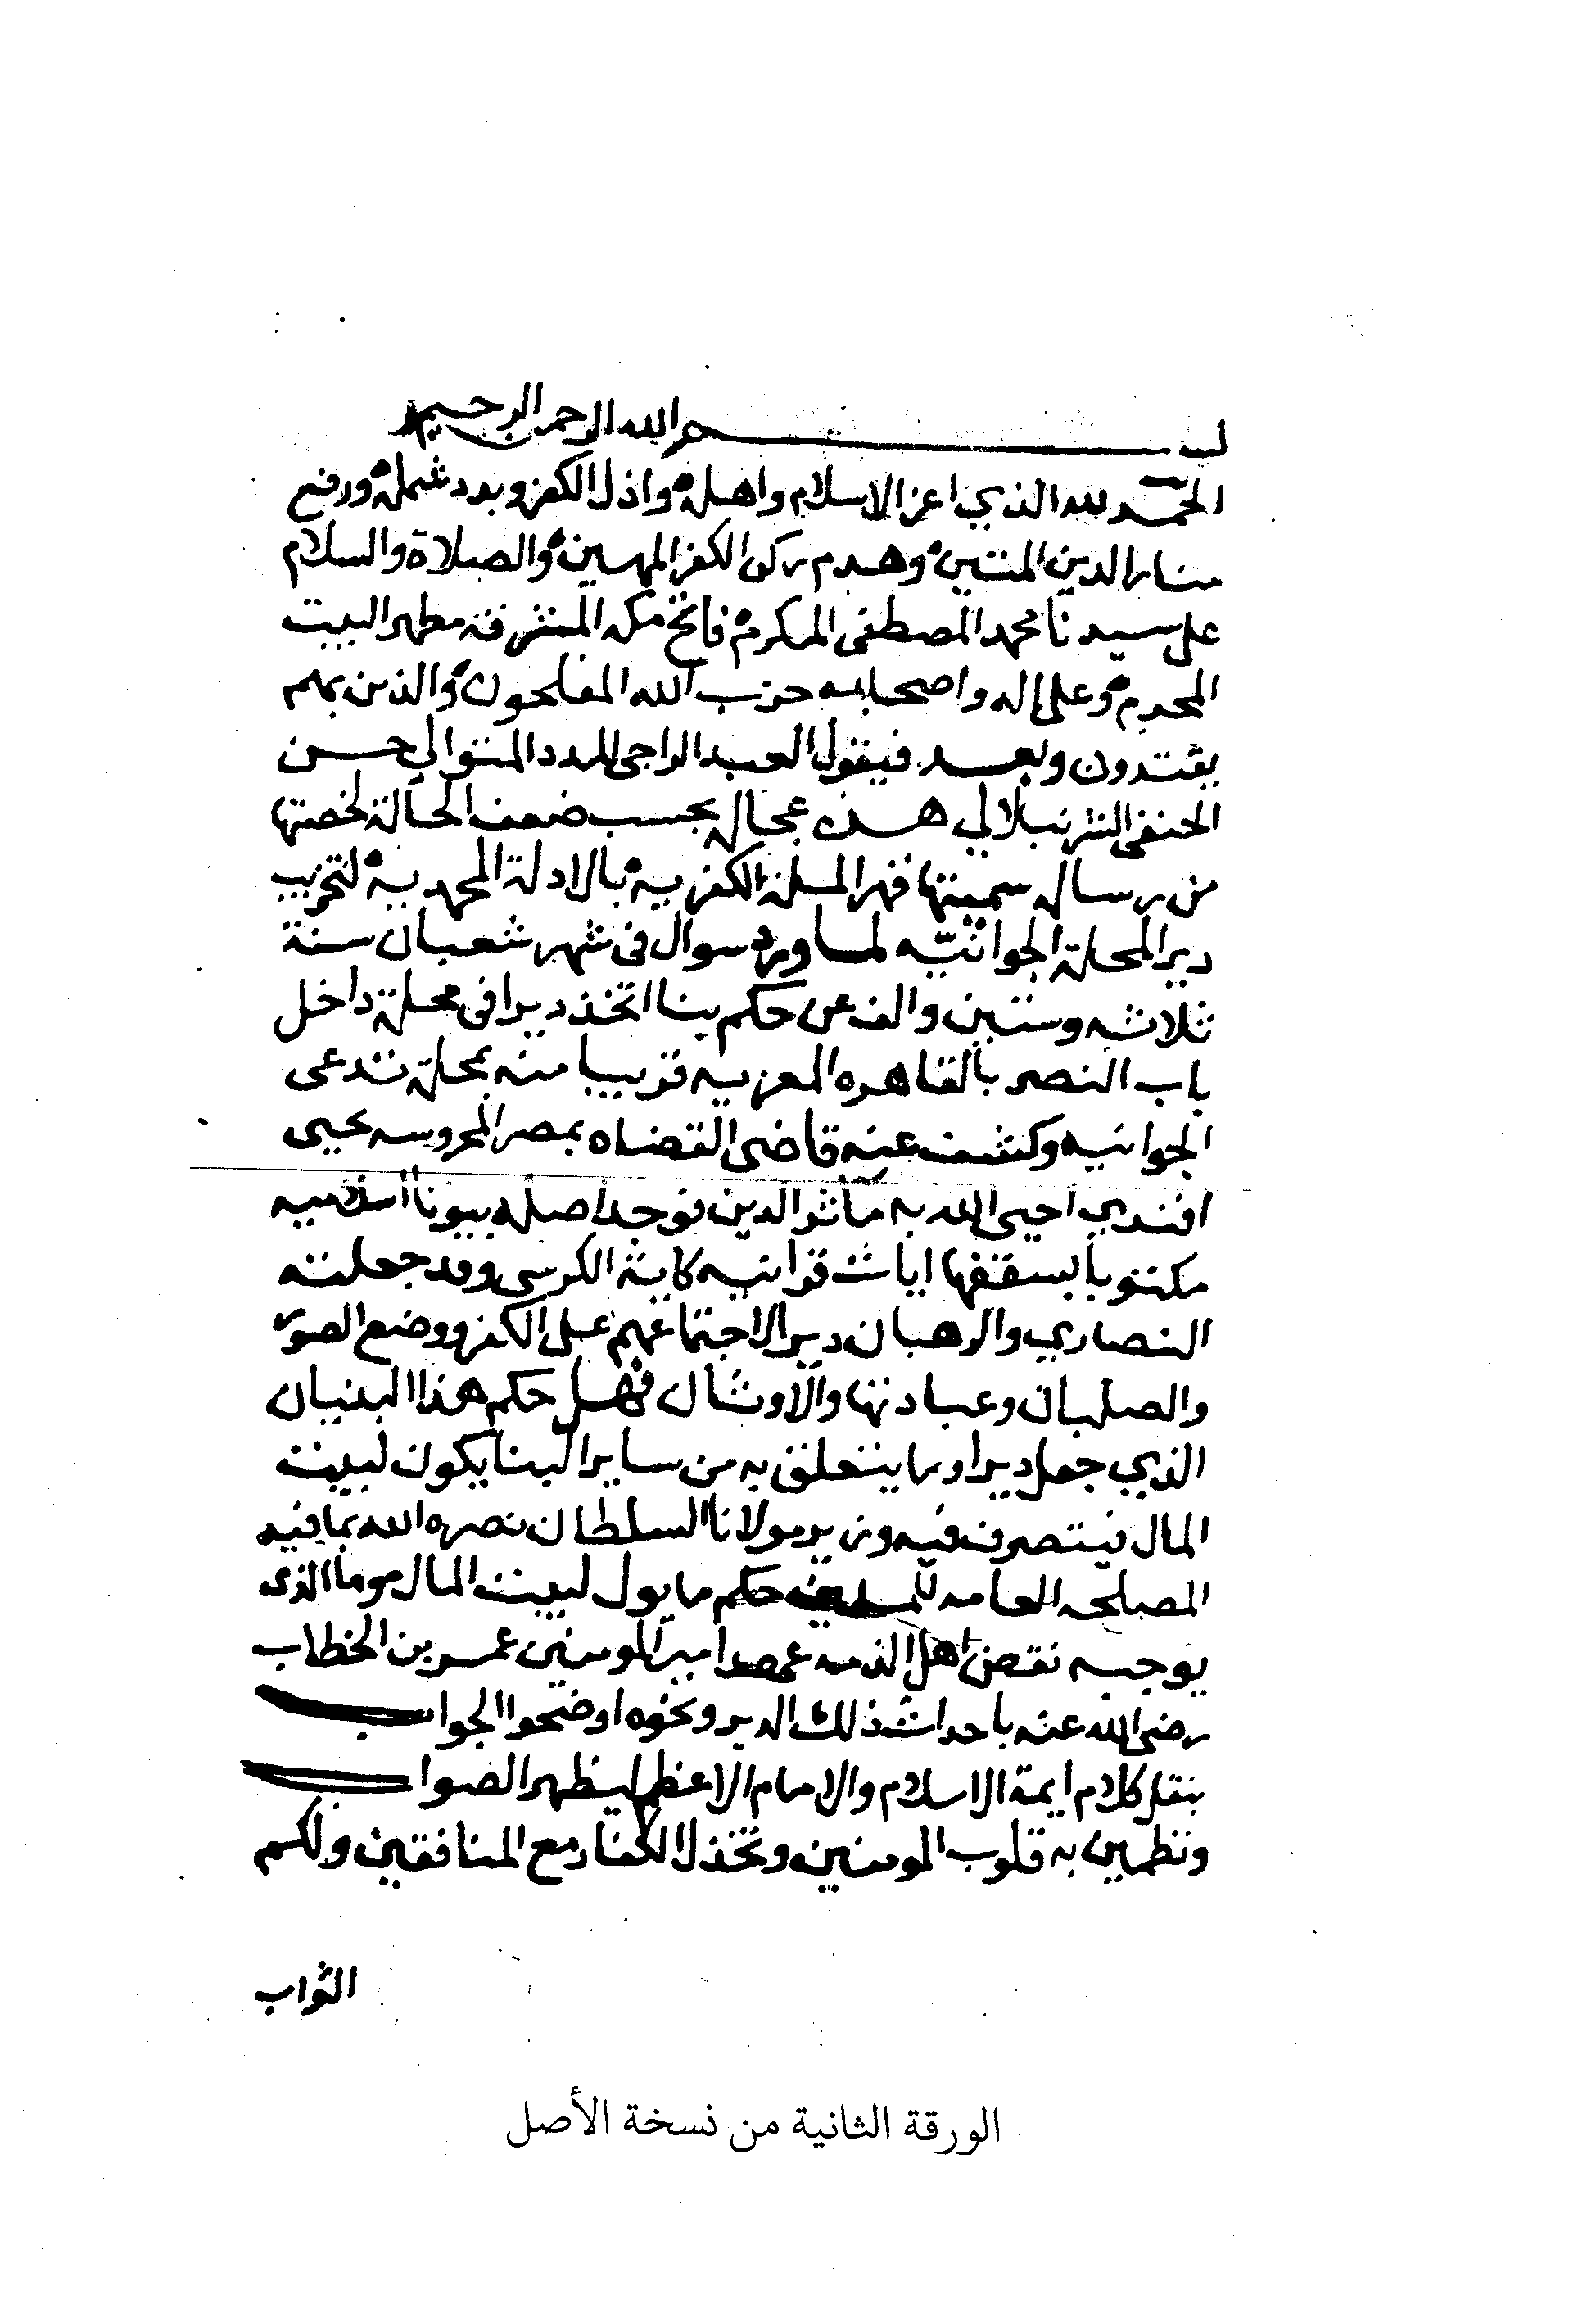 بسم الله الرحمن الرحيم
الحمد لله الذي اعز الاسلام واهله واذل الكفر وبدد شمله ورفع
منار الدين المتين وهدم ركن الكفر المهين والصلاة والسلام
على سيدنا محمد المصطفى المكرم فاتح مكه المشرفه مطهر البيت
المحرم وعلى اله واصحابه حزب الله المفلحون والذين بهم
يقتدون وبعد فيقول العبد الراجى للمدد المتوالي حسن
الحنفى الشرنبلالي هذه عجاله بحسب ضعف الحالة لخصتها
من رساله سميتها قهر الملة الكفريه بالادلة المحمديه لتخريب
دير المحلة الجوانيّه لما ورد سوال فى شهر شعبان سنة
ثلاثه وستين والف عن حكم بنا اتخذ ديرا فى محلة داخل
باب النصر بالقاهره المعزيه قريبا منه بمحلة تدعى
الجوانيه وكشف عنه قاضى القضاه بمصر المحروسه يحيى
افندي احيى الله به مآثر الدين فوجد اصله بيوتا اسلاميه
مكتوبا بسقفها ايات قرانيه كاية الكرسى وقد جعلته
النصاري والرهبان ديرا لاجتماعهم على الكفر ووضع الصور
والصلبان وعبادتها والاوثان فهل حكم هذا البنيان
الذي جعل ديرا وما يتعلق به من ساير البنا يكون لبيت
المال فيتصرف فيه وزير مولانا السلطان نصره الله بما فيه
المصلحه العامه للمسلمين حكم ما يول لبيت المال وما الذى
يوجبه نقض اهل الذمه عهد امير المومنين عمر بن الخطاب
رضى الله عنه باحداث ذلك الدير ونحوه اوضحوا الجواب
بنقل كلام ايمة الاسلام والامام الاعظم ليظهر الصواب
وتطمين به قلوب المومنين وتخذل الكفار مع المنافقين ولكم
الثواب
الورقة الثانية من نسخة الأصل